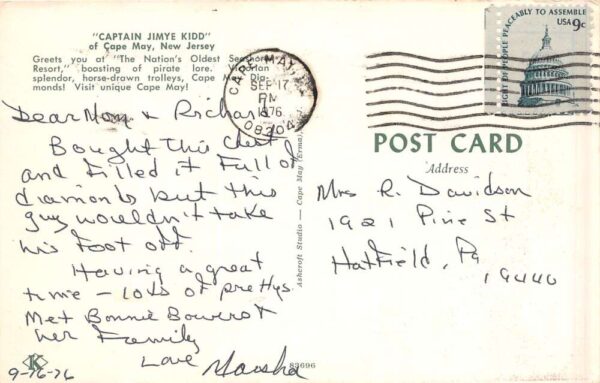 "CAPTAIN JIMYE KIDD"
of Cape May, New Jersey
Greets you at "The Nation's Oldest Seashore
Resort," boasting of pirate lore, Victorian
splendor, horse-drawn trolleys, Cape May Dia-
monds! Visit unique Cape May!
CAPE MAY
SEP 17
PM
1976
08204
RIGHT OF PEOPLE PEACEABLY TO ASSEMBLE
USA 9c
Dear Mom & Richard
Bought this chest
and filled it full of
diamonds but this
guy wouldn't take
his foot off.
Having a great
time — lots of
Met Bonnie Bowers &
her family
Love Marsha
9-16-76
K
83696
Ashcroft Studio — Cape May (Erma)
POST CARD
Address
Mrs R. Davidson
1921 Pine St
Hatfield, Pa
19440